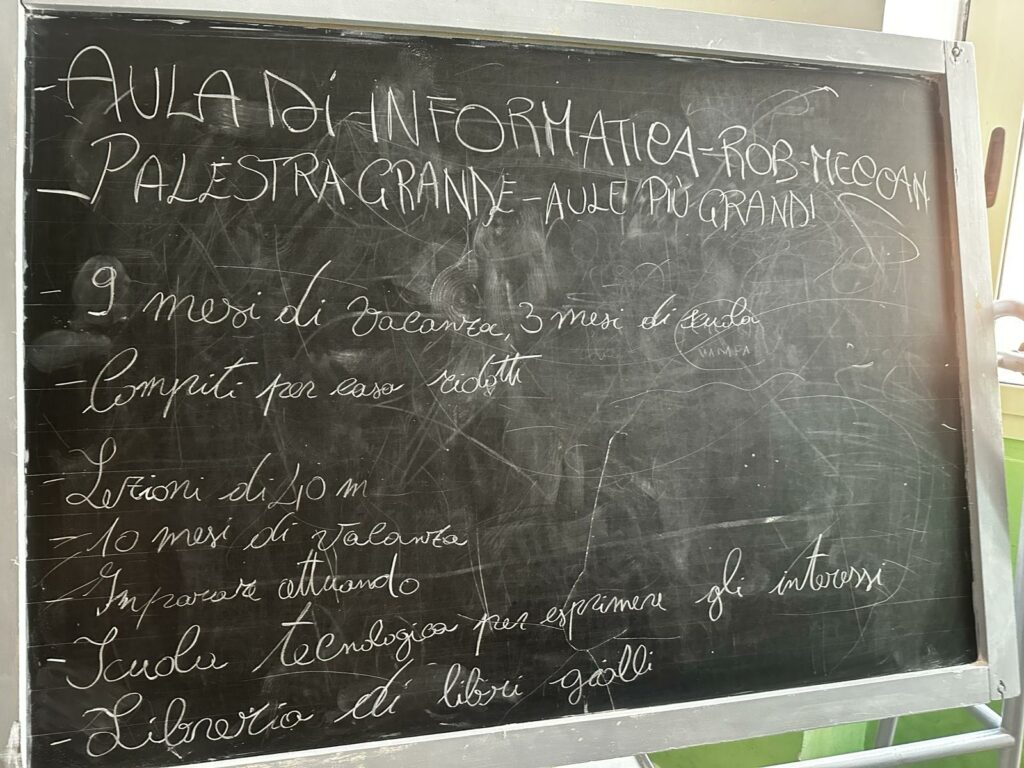 - AULA DI INFORMATICA - ROB - MECCAN
- PALESTRA GRANDE - AULE PIÙ GRANDI
- 9 mesi di vacanza, 3 mesi di scuola
- Compiti per casa ridotti
- Lezioni di 40 m
- 10 mesi di vacanza
- Imparare attuando
- Scuola tecnologica per esprimere gli interessi
- Libreria di libri gialli